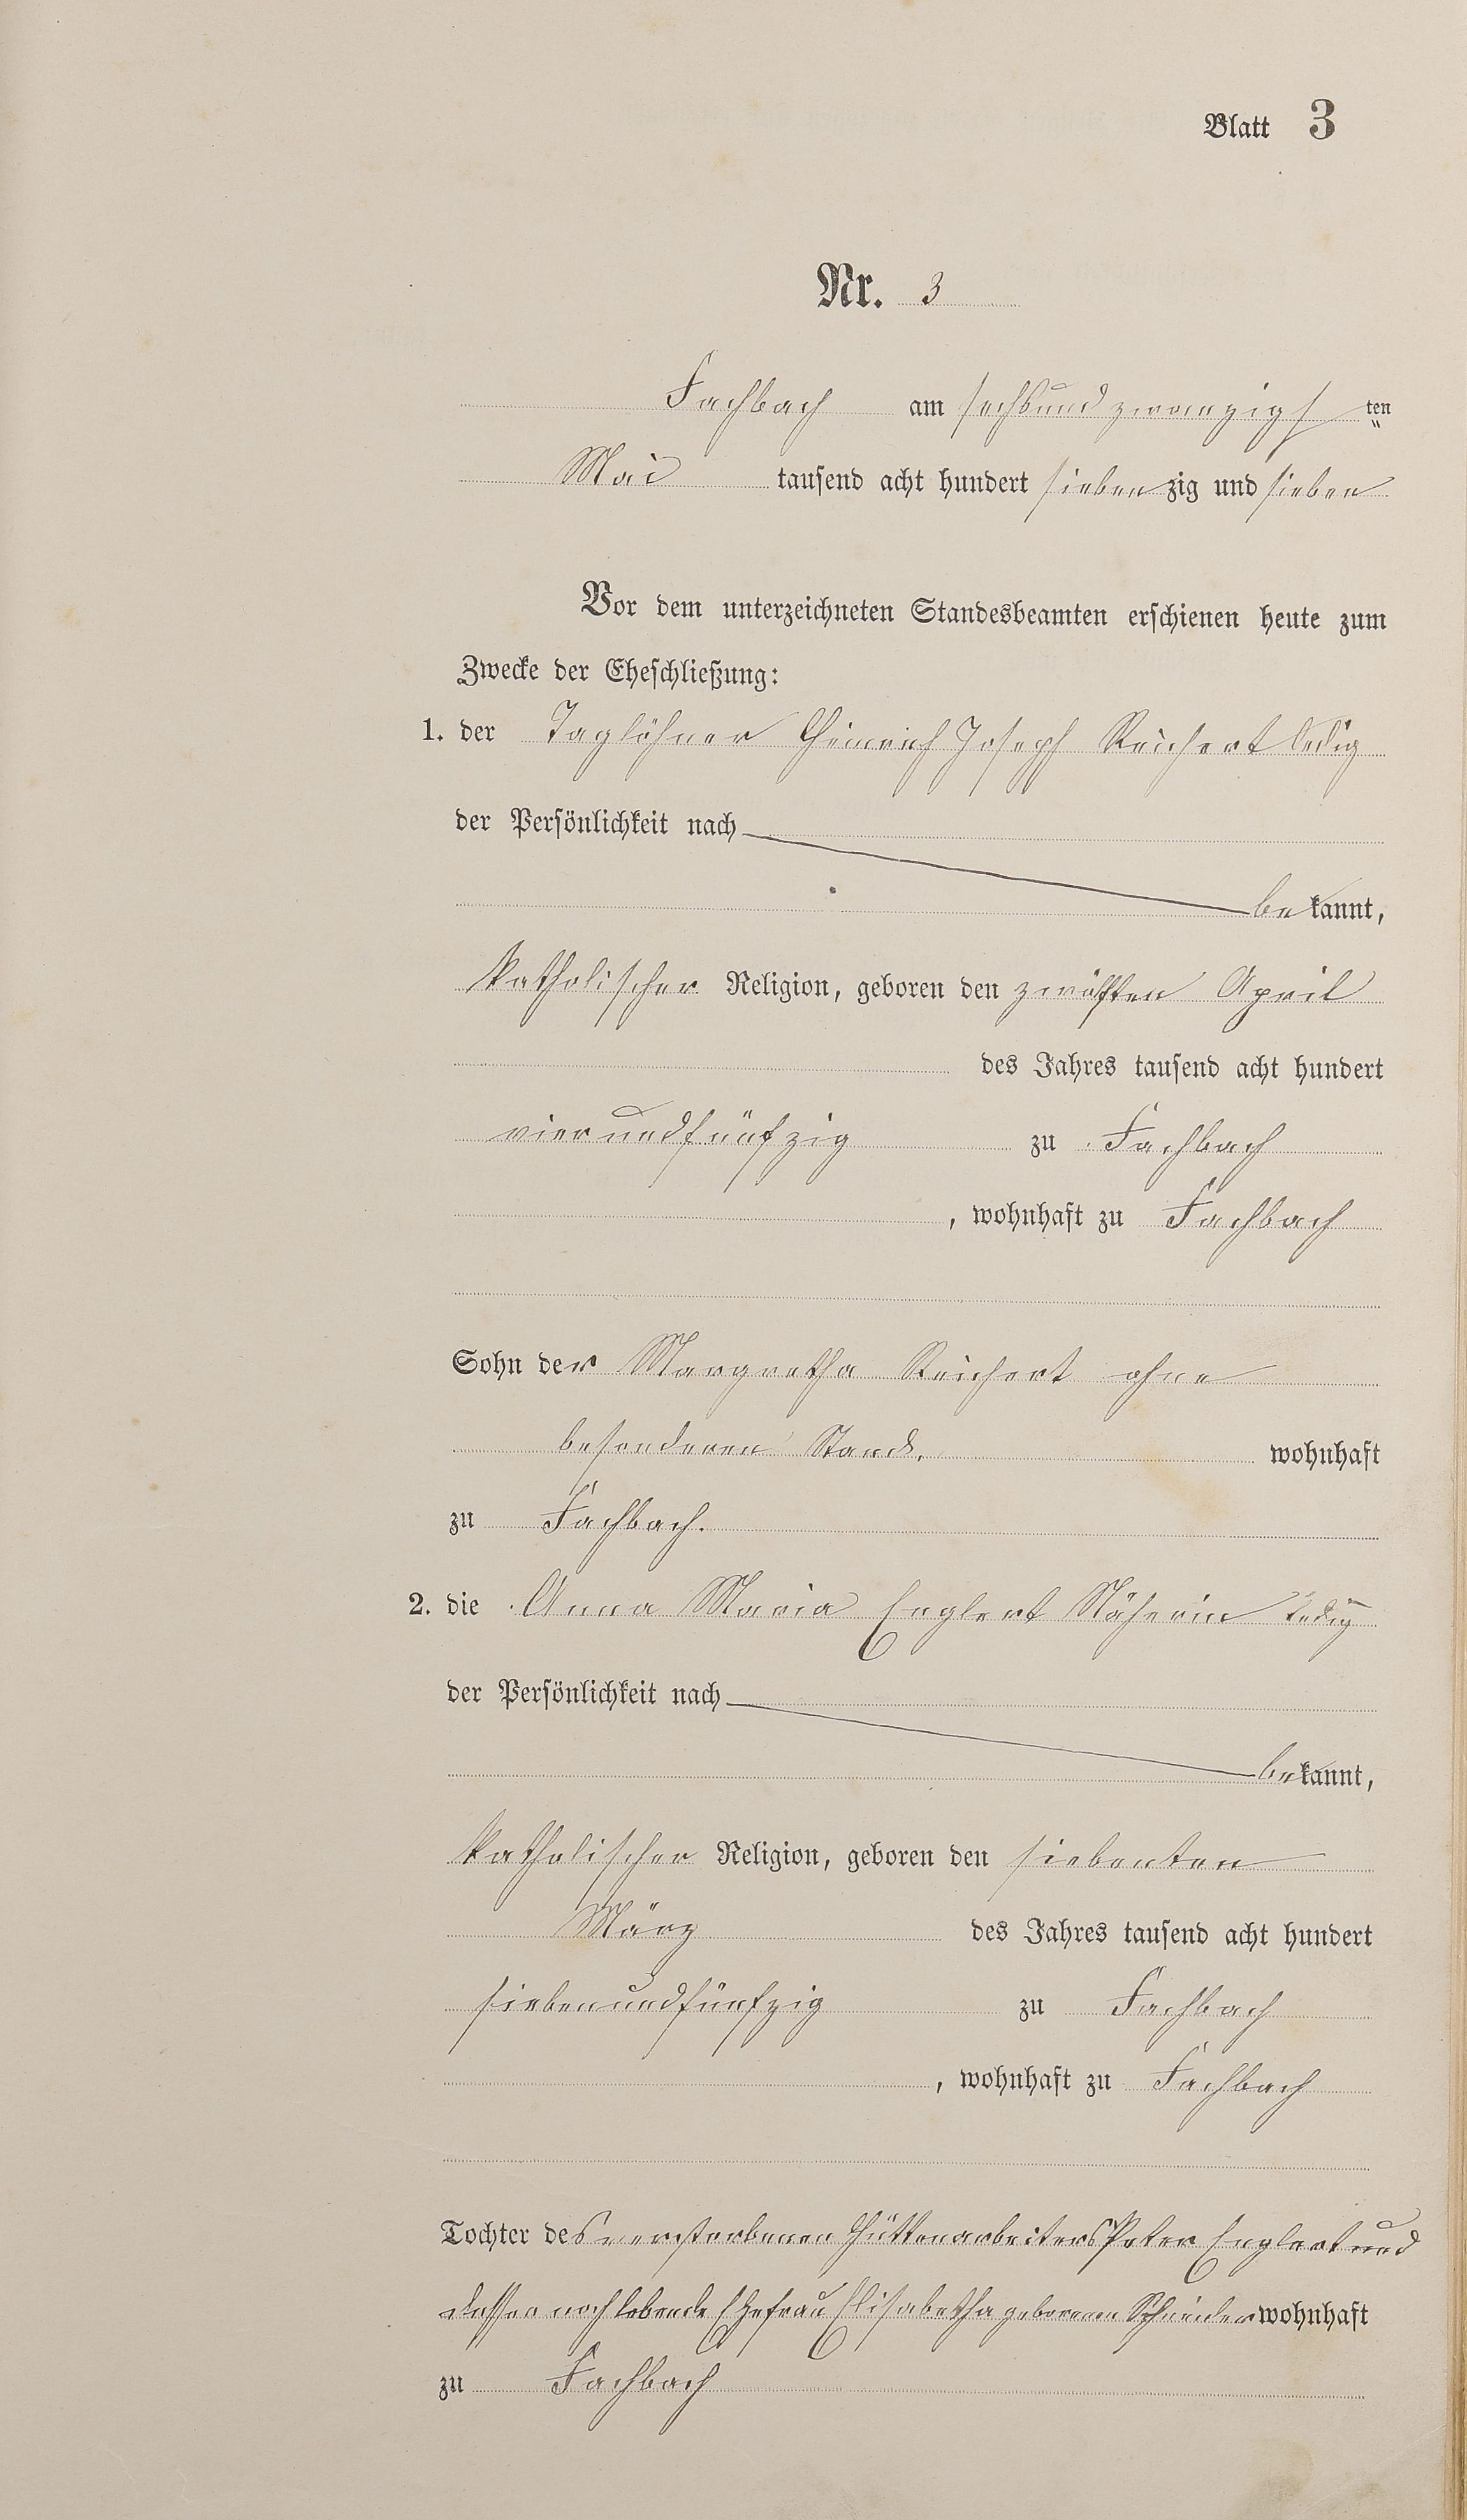 Blatt 3
Nr. 3
Fachbach am sechsundzwanzigsten
Mai tausend acht hundert siebenzig und sieben
Vor dem unterzeichneten Standesbeamten erschienen heute zum
Zwecke der Eheschließung:
1. der Taglöhner Heinrich Joseph Reichert ledig
der Persönlichkeit nach
bekannt,
katholischer Religion, geboren den zwölften April
des Jahres tausend acht hundert
vierundfünfzig zu Fachbach
, wohnhaft zu Fachbach
Sohn der Margretha Reichert ohne
besonderen Stand, wohnhaft
zu Fachbach.
2. die Anna Maria Englert Näherin ledig
der Persönlichkeit nach
bekannt,
katholischer Religion, geboren den siebenten
März des Jahres tausend acht hundert
siebenundfünfzig zu Fachbach
, wohnhaft zu Fachbach
Tochter des verstorbenen Hüttenarbeiters Peter Englert und
dessen noch lebende Ehefrau Elisabetha geborenen Schneider wohnhaft
zu Fachbach